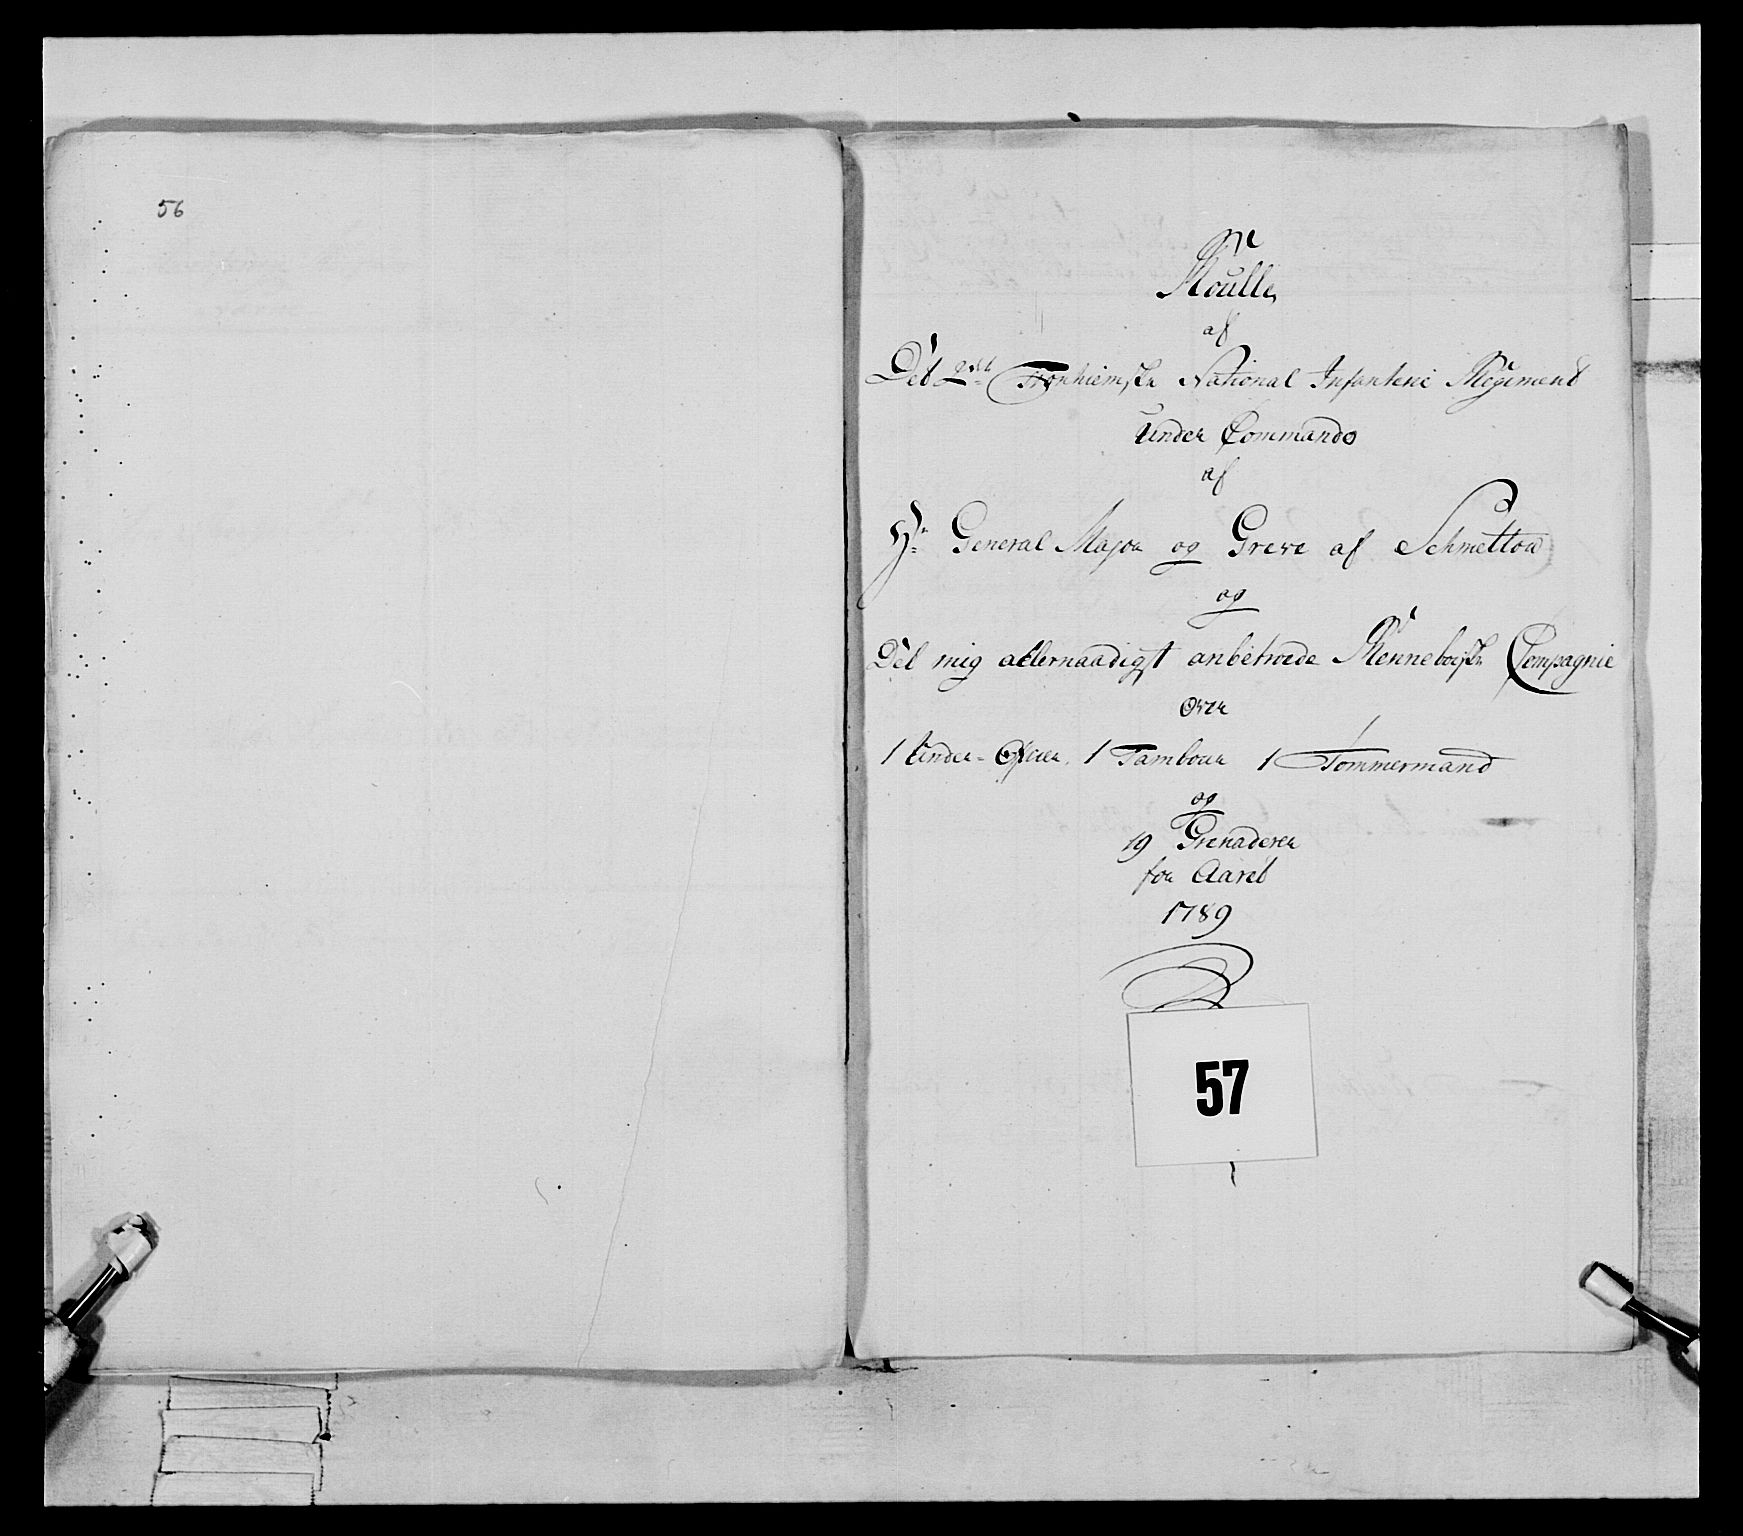 56
Roulle
af
Det 2det Tronhiemske National Infanterie Regiment
Under Commando
af
Hr General Major og Greve af Schmettou
og
Det mig allernaadigst anbetroede Renneboeske Compagnie
Over
1 Under-Officier, 1 Tambour 1 Tømmermand
og
19 Grenaderer
for Aaret
1789
57